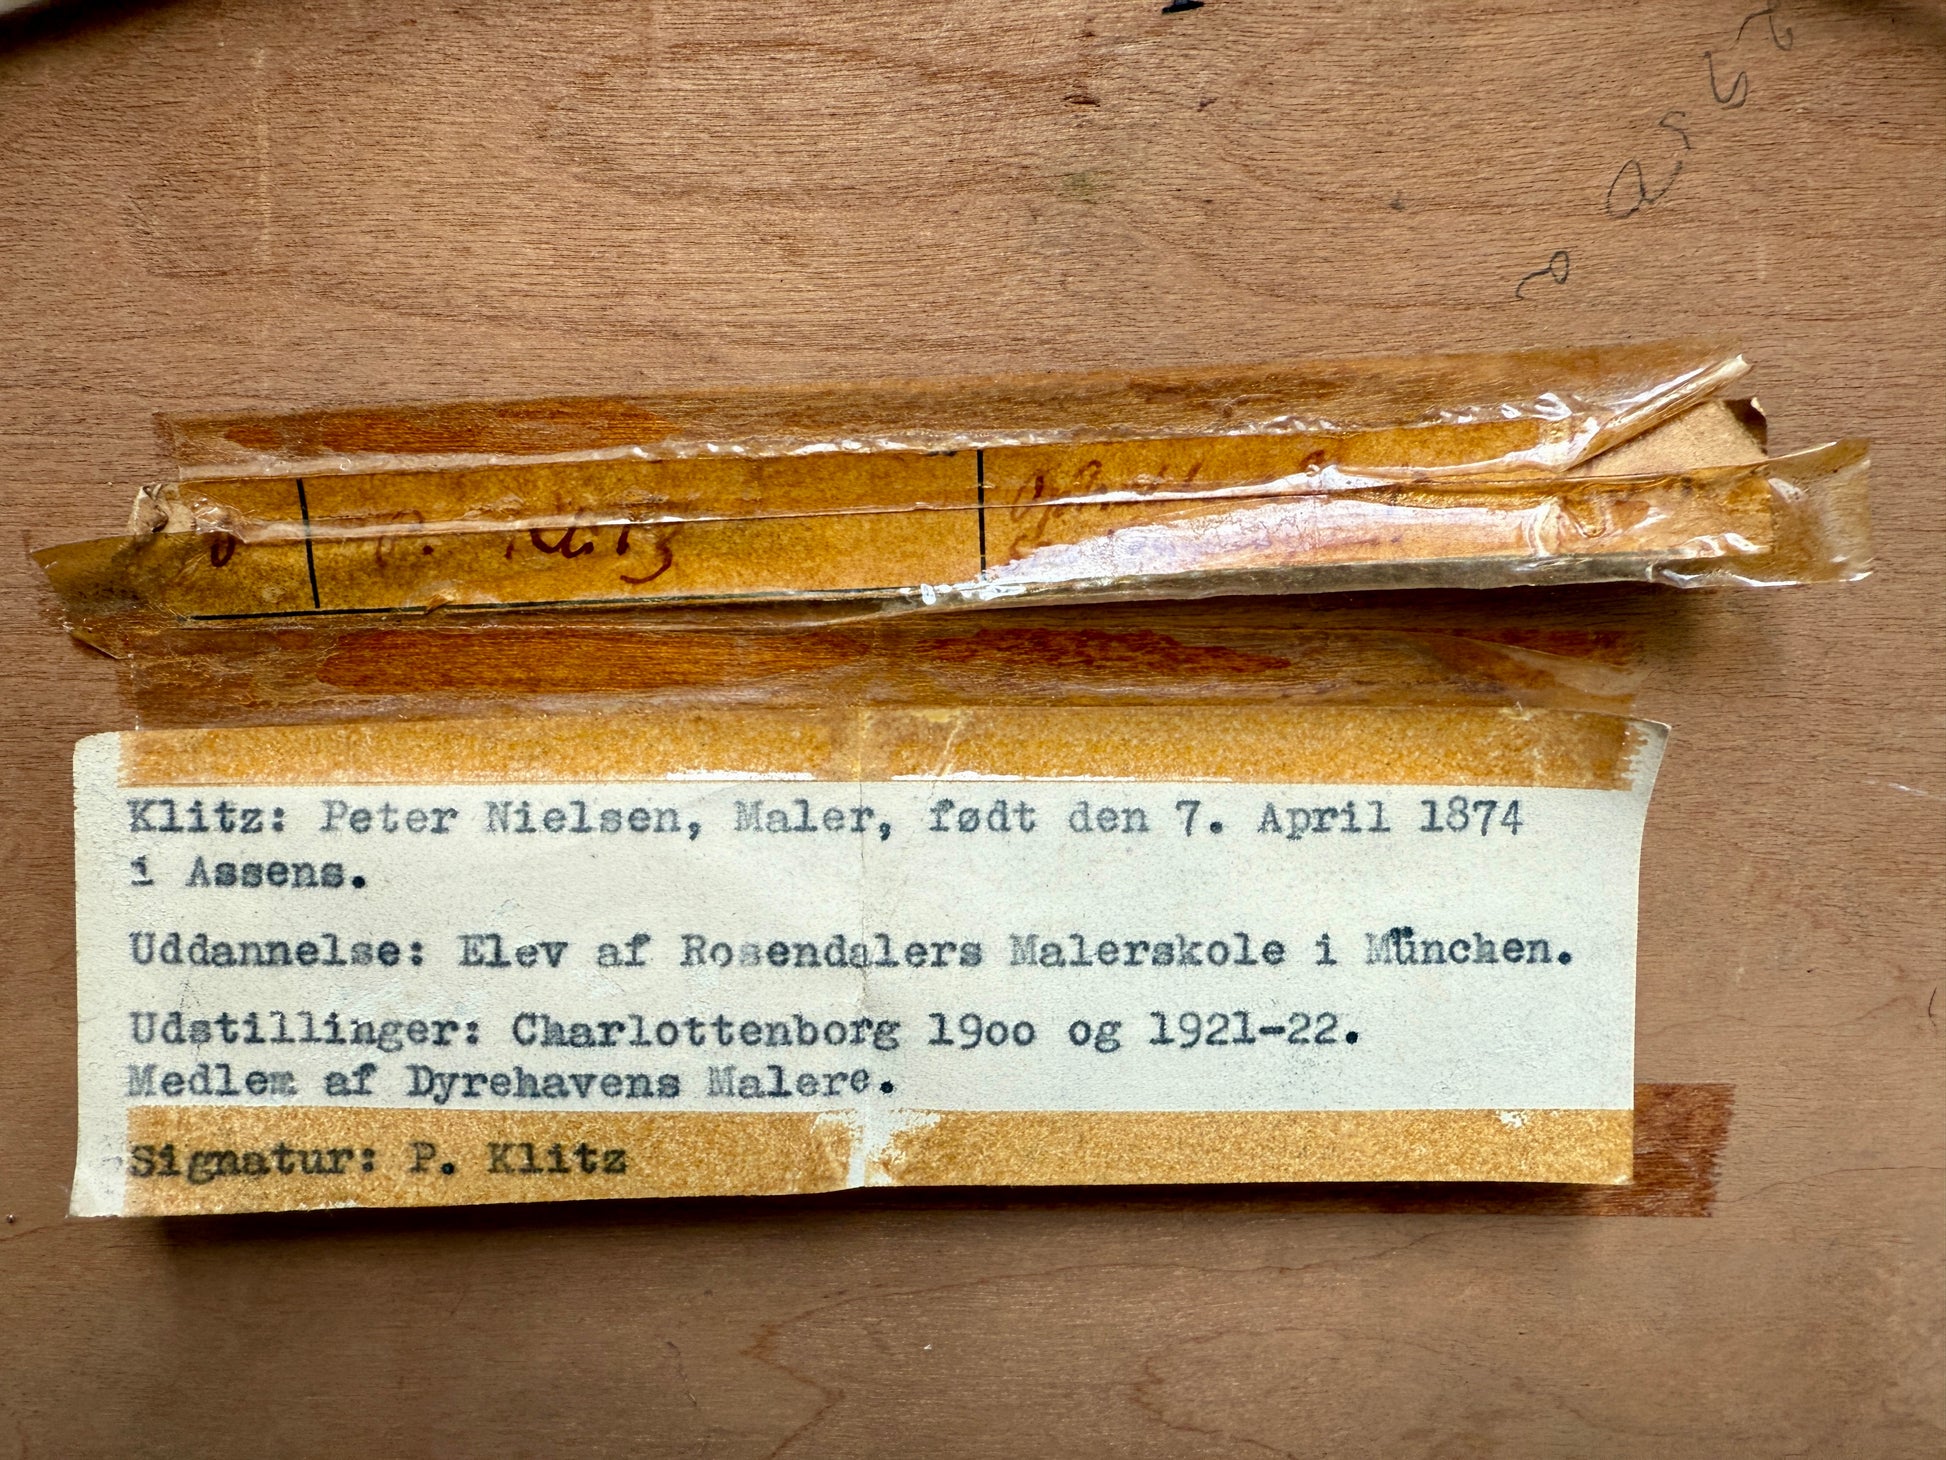 P. Klitz
Klitz: Peter Nielsen, Maler, født den 7. April 1874
i Assens.
Uddannelse: Elev af Rosendalers Malerskole i München.
Udstillinger: Charlottenborg 19oo og 1921-22.
Medlem af Dyrehavens Malere.
Signatur: P. Klitz